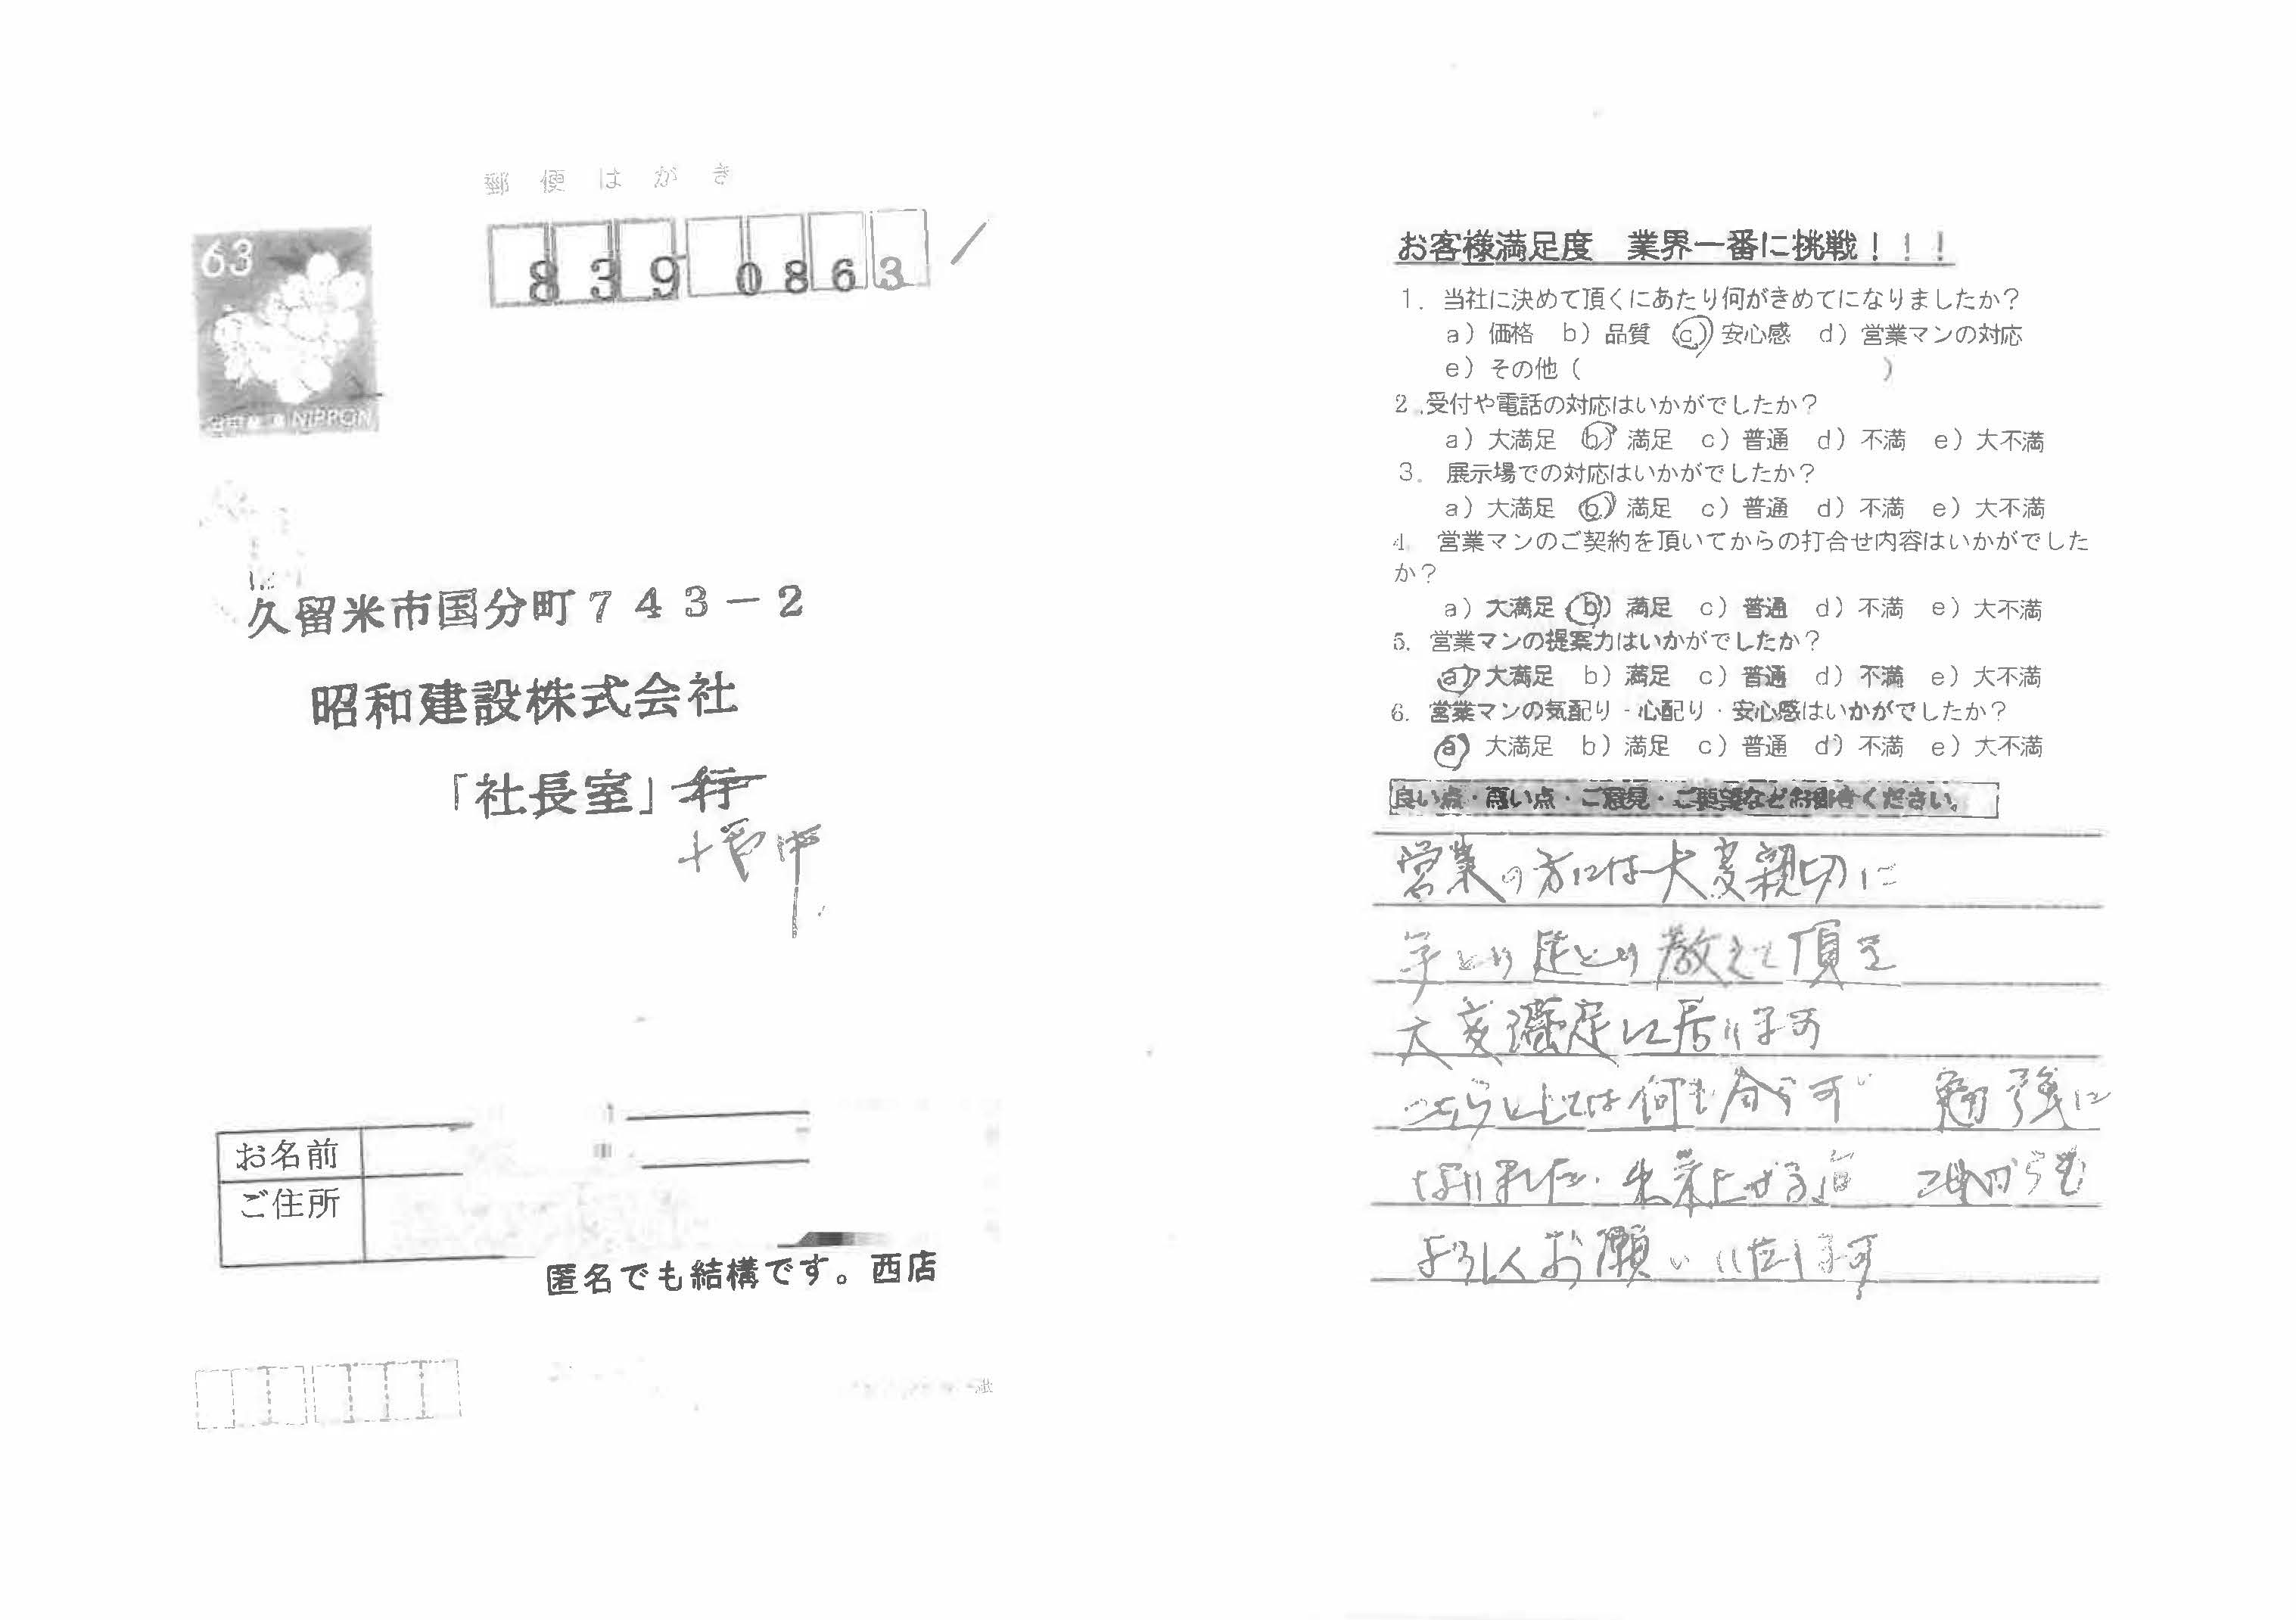 郵便はがき
63
NIPPON
839 0863
久留米市国分町743-2
昭和建設株式会社
「社長室」行
御中
お名前
ご住所
匿名でも結構です。西店
お客様満足度 業界一番に挑戦!!!
1. 当社に決めて頂くにあたり何がきめてになりましたか?
a) 価格 b) 品質 c) 安心感 d) 営業マンの対応
e) その他( )
2.受付や電話の対応はいかがでしたか?
a) 大満足 b) 満足 c) 普通 d) 不満 e) 大不満
3. 展示場での対応はいかがでしたか?
a) 大満足 b) 満足 c) 普通 d) 不満 e) 大不満
4. 営業マンのご契約を頂いてからの打合せ内容はいかがでした
か?
a) 大満足 b) 満足 c) 普通 d) 不満 e) 大不満
5. 営業マンの提案力はいかがでしたか?
a) 大満足 b) 満足 c) 普通 d) 不満 e) 大不満
6. 営業マンの気配り・心配り・安心感はいかがでしたか?
a) 大満足 b) 満足 c) 普通 d) 不満 e) 大不満
良い点・悪い点・ご意見・ご要望などお聞きください。
営業の方には大変親切に
手とり足とり教えて頂き
大変満足して居ります
こちらとしては何も分らず 勉強に
なりました。出来上がる迄 これからも
よろしくお願い致します